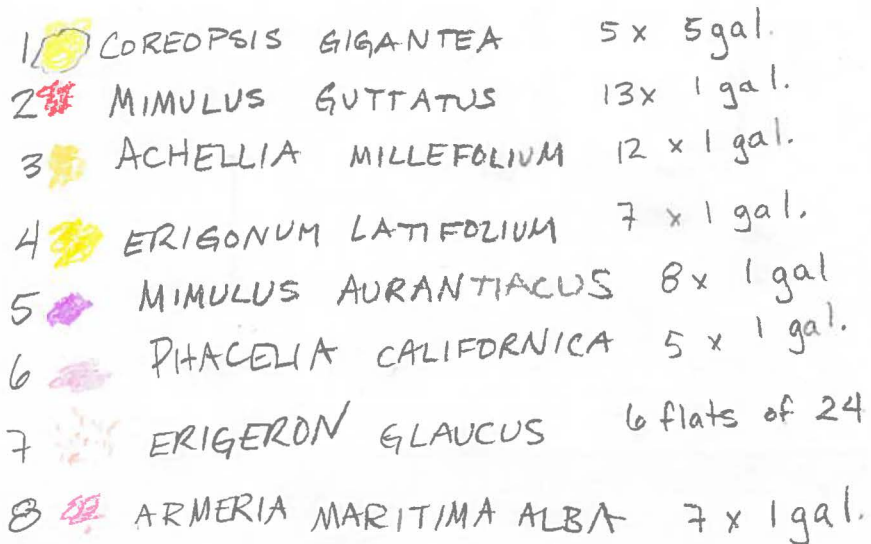 1 COREOPSIS GIGANTEA 5 x 5 gal.
2 MIMULUS GUTTATUS 13x 1 gal.
3 ACHELLIA MILLEFOLIUM 12 x 1 gal.
4 ERIGONUM LATIFOLIUM 7 x 1 gal.
5 MIMULUS AURANTIACUS 8x 1 gal
6 PHACELIA CALIFORNICA 5 x 1 gal.
7 ERIGERON GLAUCUS 6 flats of 24
8 ARMERIA MARITIMA ALBA 7 x 1 gal.